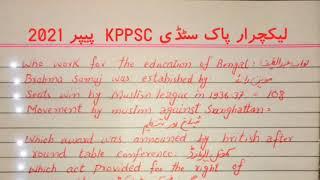 لیکچرار پاک سٹڈی KPPSC پیپر 2021
Who work for the education of Bengal: نواب عبدالطیف
Brahma Samaj was estabished by
Seats win by Muslim league in 1936-37 = 108
Movement by muslim against Sanghattan=
تبلیغ اور تنظیم
Which award was announced by british after
round table conference: کمیونل ایوارڈ
Which act provided for the right of